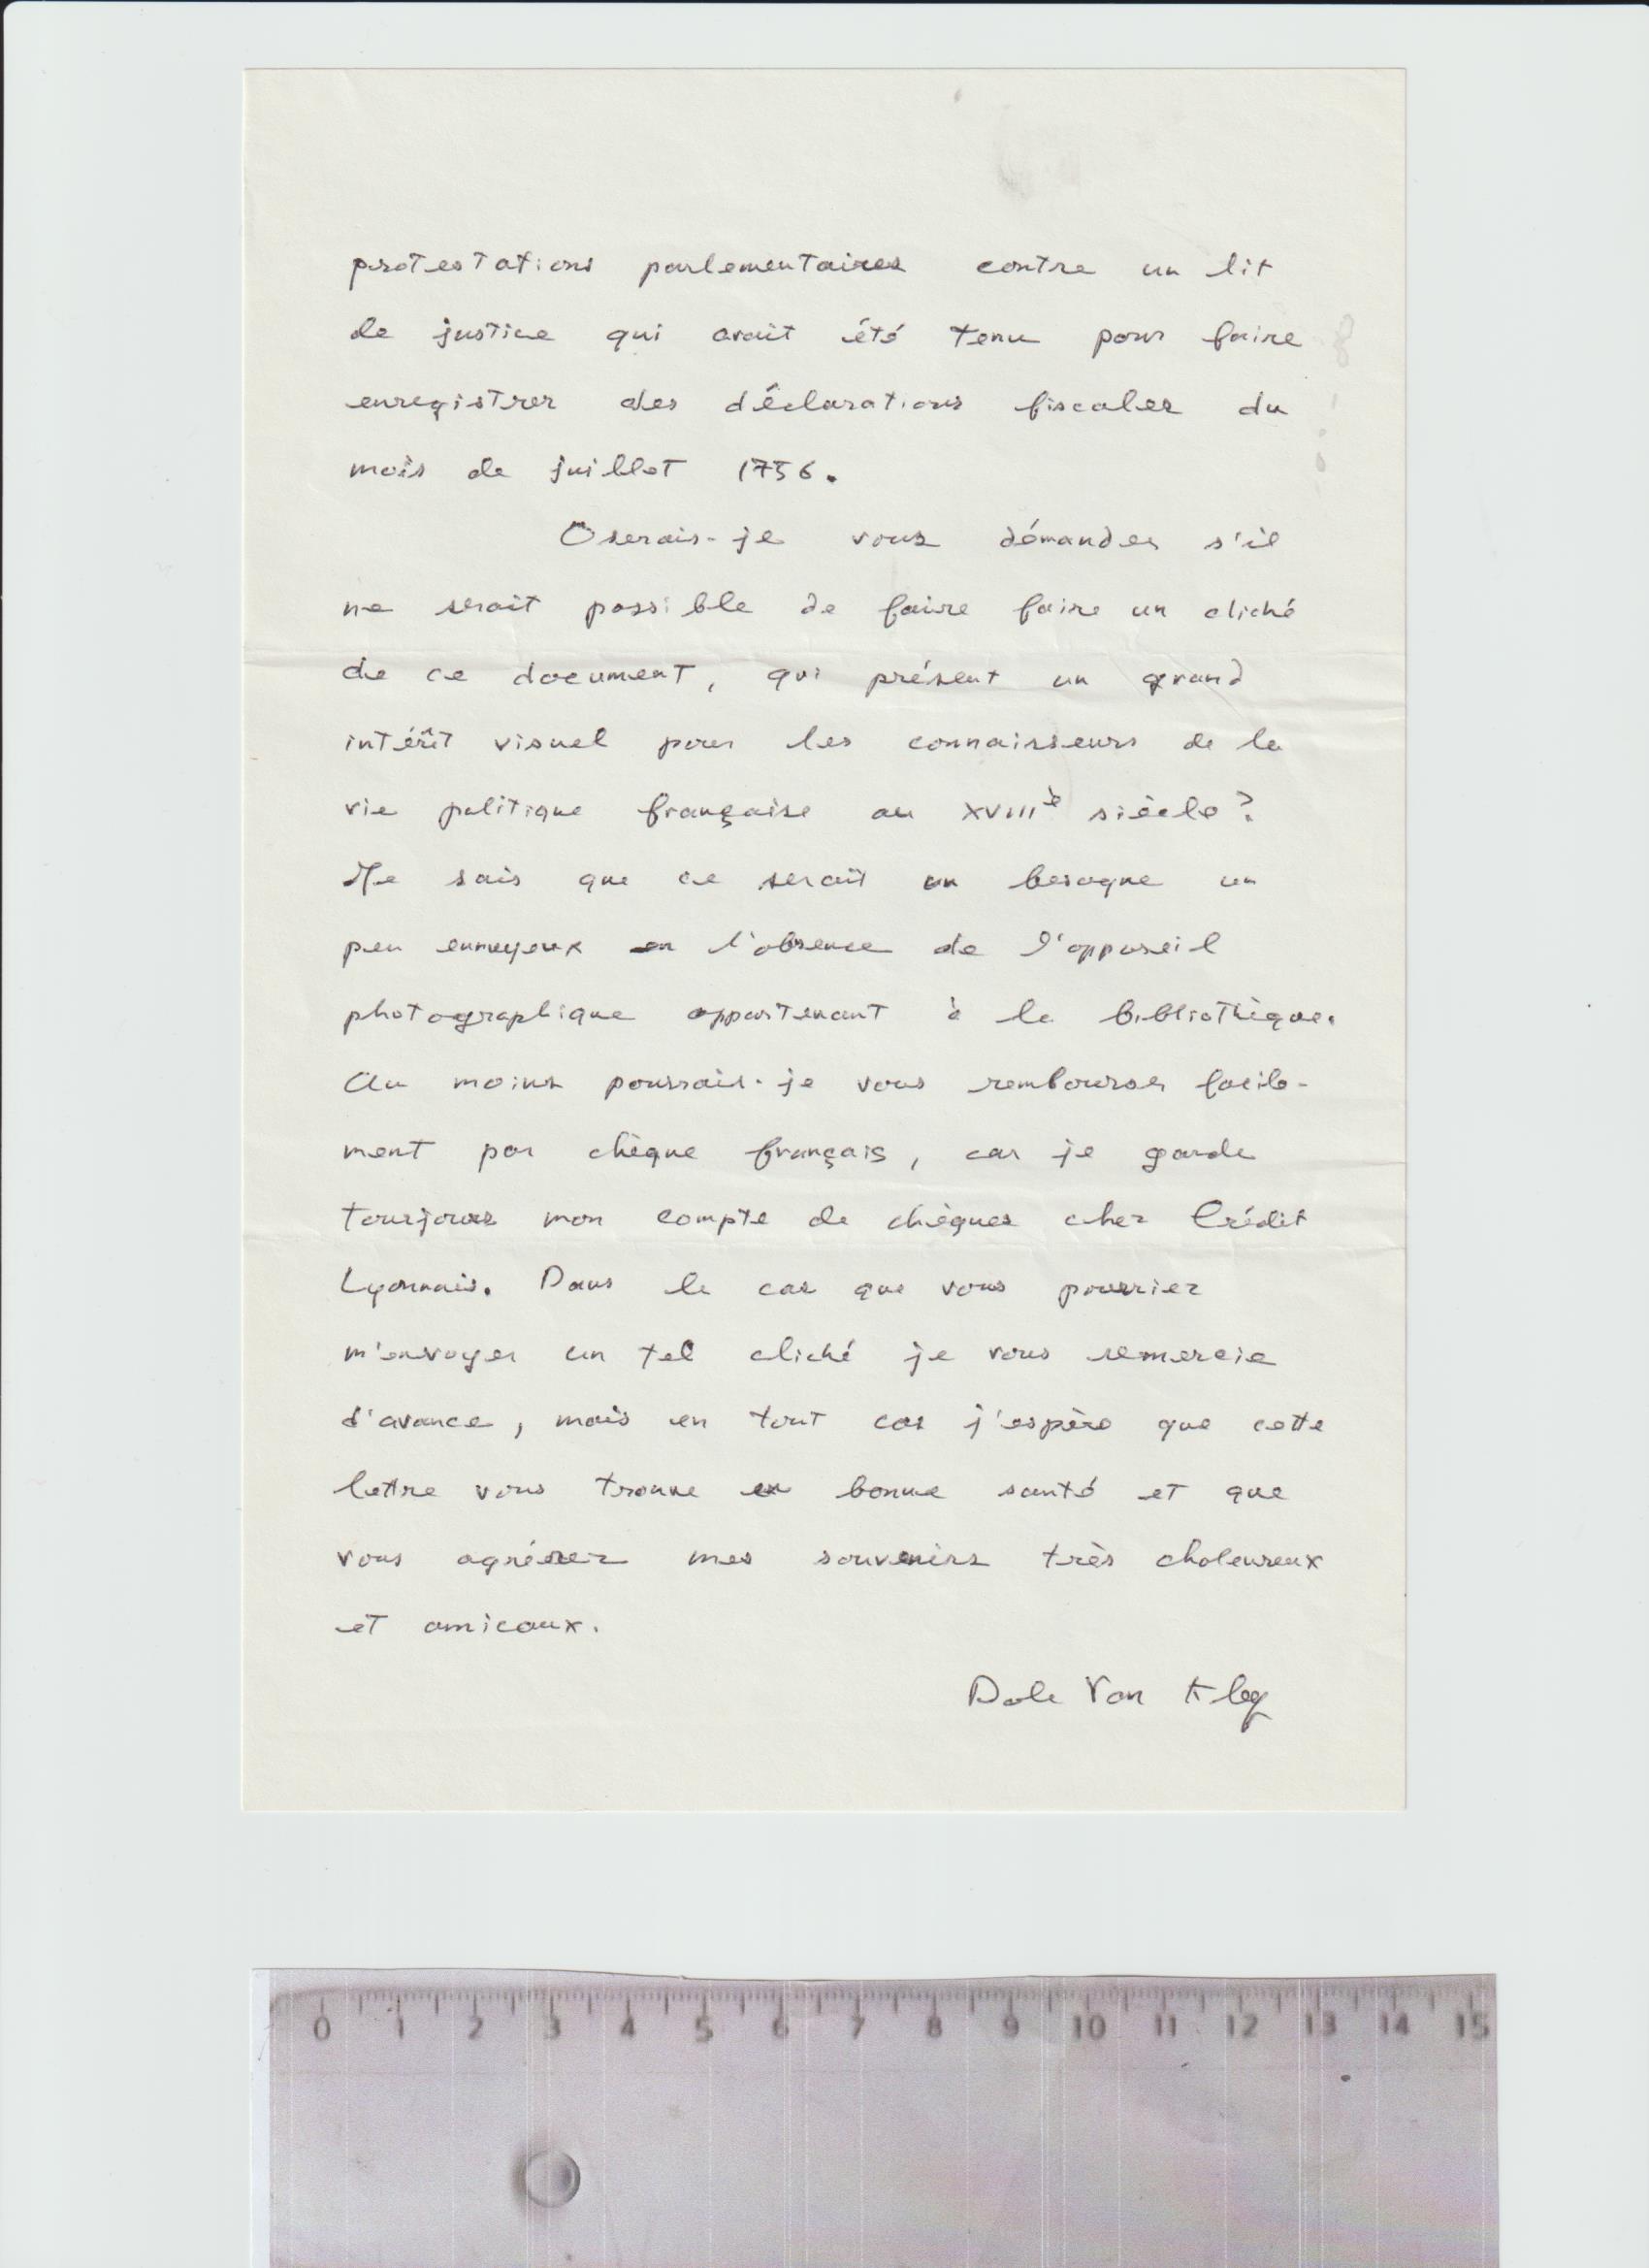 protestations parlementaires contre un lit
de justice qui avait été tenu pour faire
enregistrer des déclarations fiscales du
mois de juillet 1756.
Oserais-je vous démander s'il
ne serait possible de faire faire un cliché
de ce document, qui présent un grand
intérêt visuel pour les connaisseurs de la
vie politique française au XVIIIè siècle?
Je sais que ce serait un besogne un
peu ennuyeux en l'absence de l'appareil
photographique appartenant à la bibliothèque.
Au moins pourrais-je vous rembourser facile-
ment par chèque français, car je garde
toujours mon compte de chèques chez Crédit
Lyonnais. Dans le cas que vous pourriez
m'envoyer un tel cliché je vous remercie
d'avance, mais en tout cas j'espère que cette
lettre vous trouve en bonne santé et que
vous agréerez mes souvenirs très chaleureux
et amicaux.
Dale Van Kley
0 1 2 3 4 5 6 7 8 9 10 11 12 13 14 15